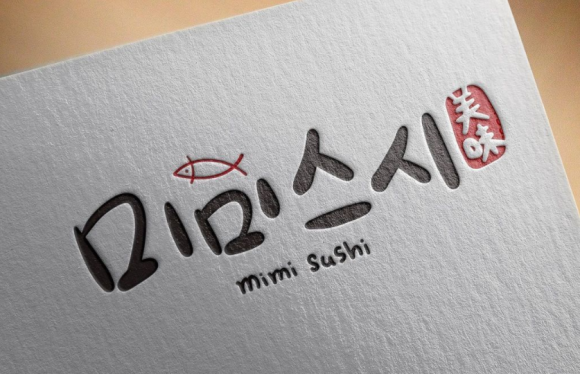 미미스시
美味
mimi sushi